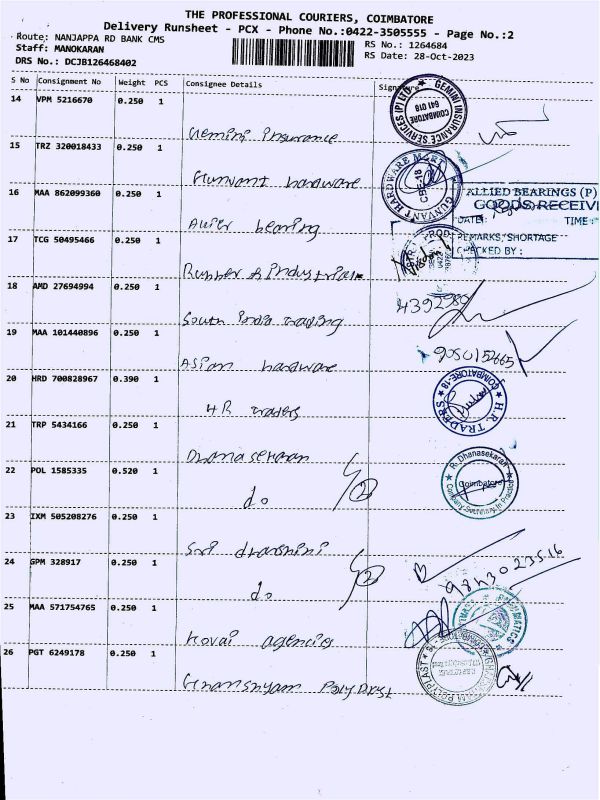 THE PROFESSIONAL COURIERS, COIMBATORE
Delivery Runsheet - PCX - Phone No.:0422-3505555 - Page No.:2
Route: NANJAPPA RD BANK CMS
RS No.: 1264684
Staff: MANOKARAN
RS Date: 28-Oct-2023
DRS No.: DCJB126468402
S No Consignment No Weight PCS Consignee Details Signature
14 VPM 5216670 0.250 1
Gemini Insurance
GEMINI INSURANCE SERVICES (P) LTD. COIMBATORE 641 018
15 TRZ 320018433 0.250 1
Gunvant hardware
GUNVANT HARDWARE MART
16 MAA 862099360 0.250 1
bearing
ALLIED BEARINGS (P)
GOODS RECEIV
DATE: TIME:
REMARKS, SHORTAGE
CHECKED BY :
17 TCG 50495466 0.250 1
Rubber & Industrial
18 AMD 27694994 0.250 1
South India trading
19 MAA 101440896 0.250 1
Asian hardware
9050152665
20 HRD 700828967 0.390 1
HR traders
H.R. TRADERS COIMBATORE-18
21 TRP 5434166 0.250 1
Dhanasekaran
22 POL 1585335 0.520 1
do 2
R. Dhanasekaran Coimbatore Company Secretary In Practice
23 IXM 505208276 0.250 1
Sri dharshini
9843023516
24 GPM 328917 0.250 1
do 2
25 MAA 571754765 0.250 1
Kovai agencies
26 PGT 6249178 0.250 1
Ghanshyam Polyplast